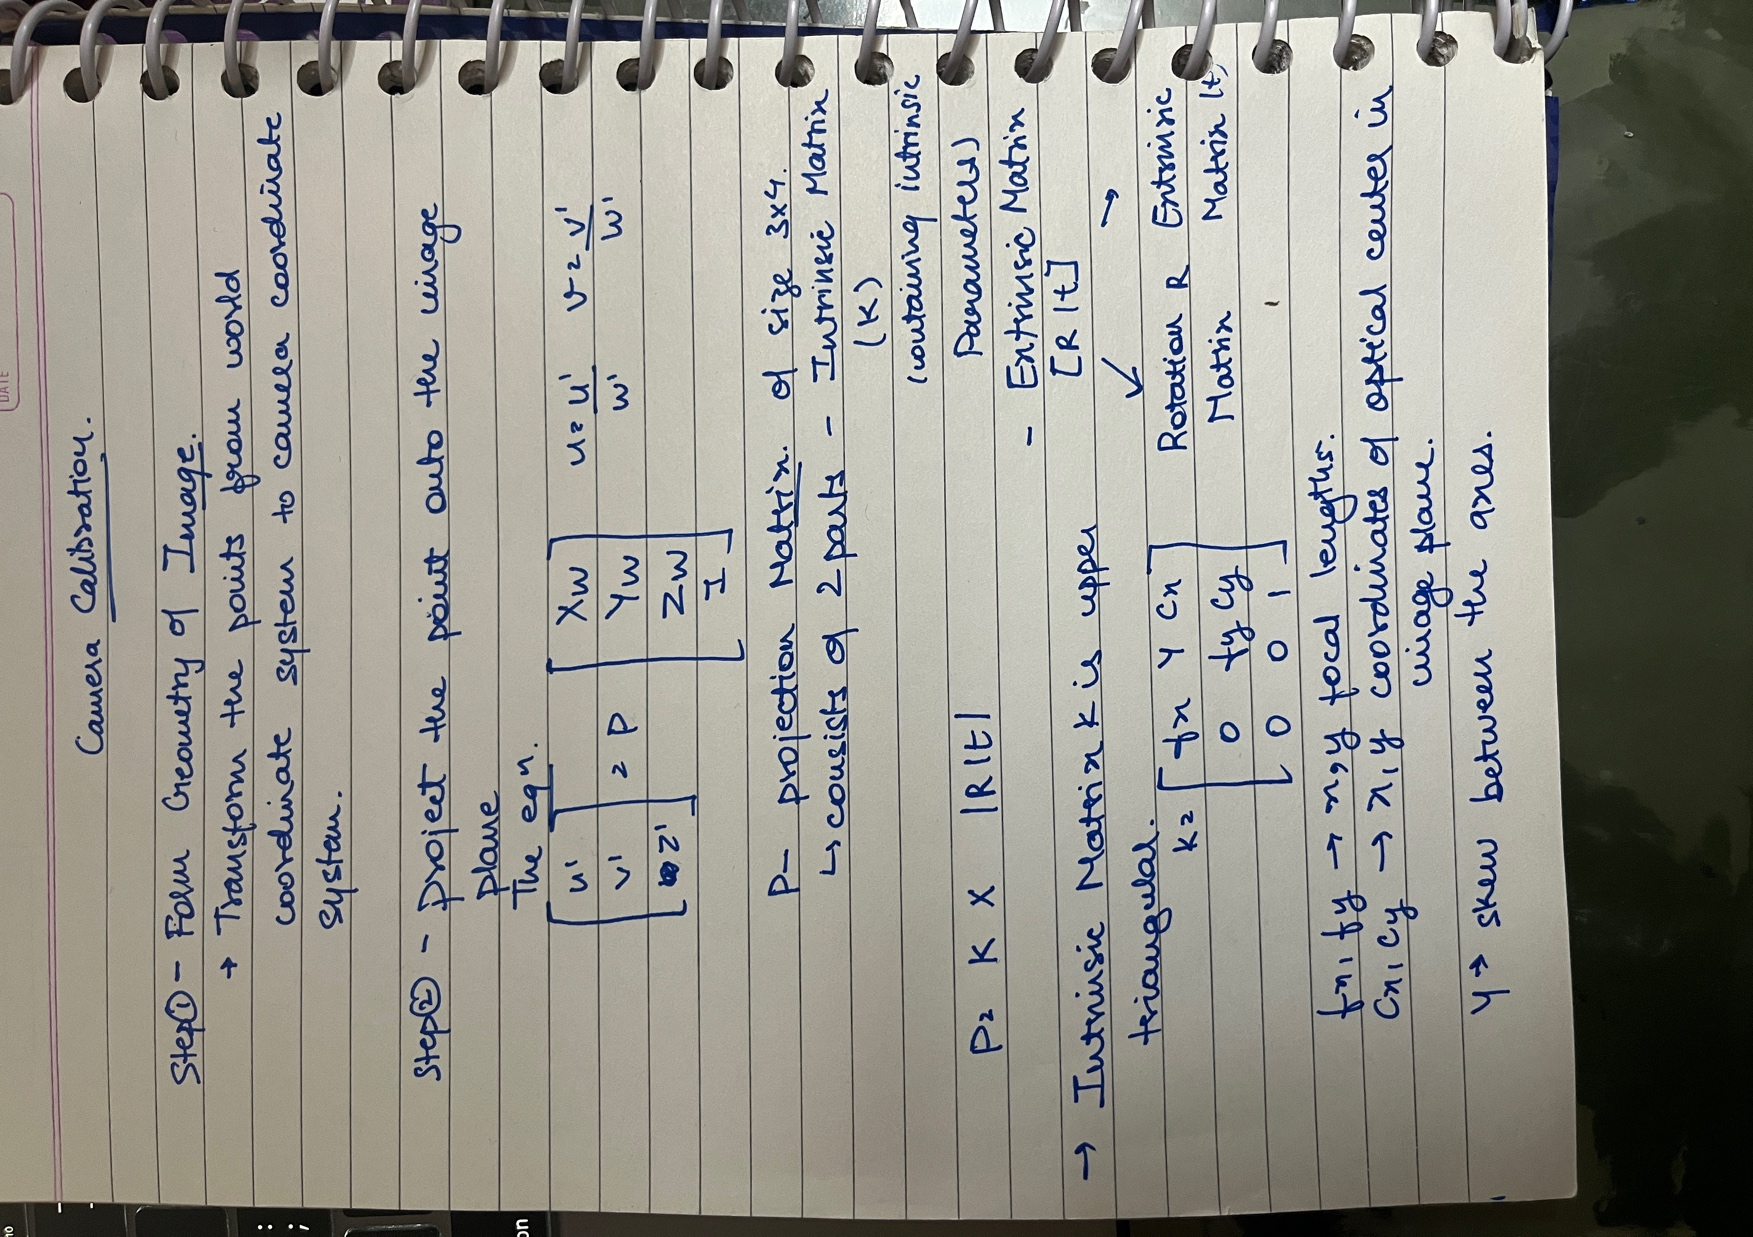 DATE
Camera Calibration.
Step ① - Form Geometry of Image.
→ Transform the points from world
coordinate system to camera coordinate
system.
Step ② - Project the point onto the image
plane
The eqn.
[ u' ] = P [ Xw ] u = u'/w' v = v'/w'
[ v' ] [ Yw ]
[ z' ] [ Zw ]
[ 1 ]
P - projection Matrix. of size 3x4.
↳ consists of 2 parts - Intrinsic Matrix
(K)
(containing intrinsic
Parameters)
P = K X |R|t| - Extrinsic Matrix
[R|t]
→ Intrinsic Matrix K is upper
triangular.
K = [ fx γ cx ]
[ 0 fy cy ]
[ 0 0 1 ]
Rotation R
Matrix
Extrinsic
Matrix |t,
fx, fy → x, y focal lengths.
cx, cy → x, y coordinates of optical center in
image plane.
γ → skew between the axes.